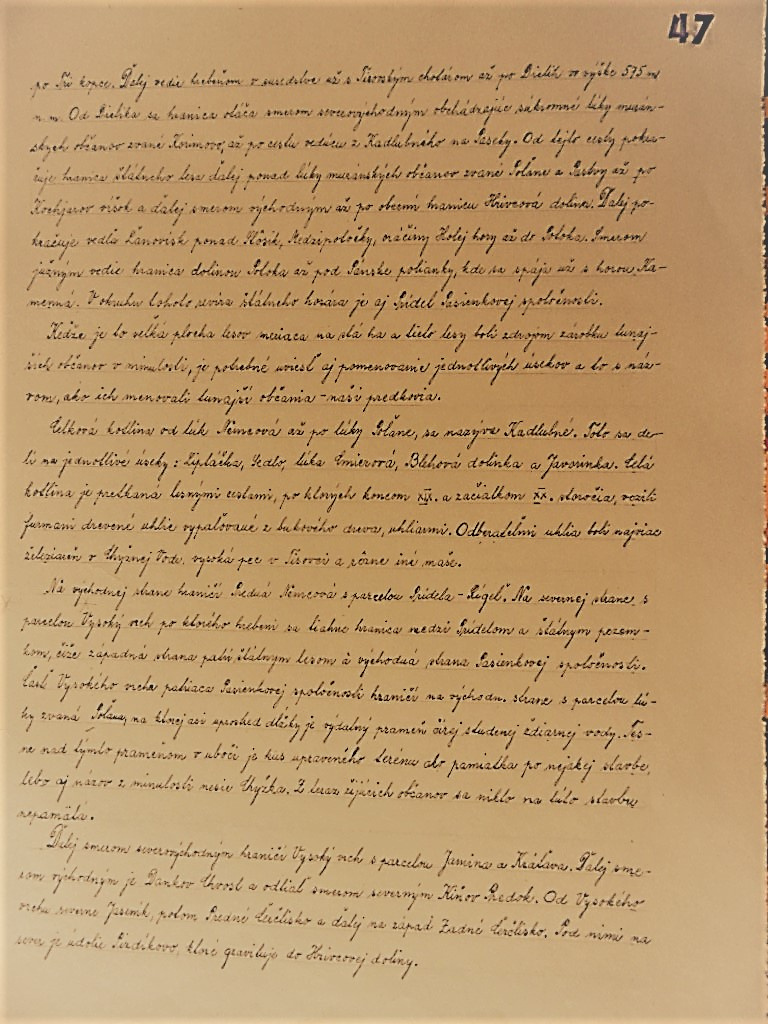 47
po Tri kopce. Ďalej vedie hrebeňom v susedstve už s Tisovským chotárom až po Dielik vo výške 575 m
n. m. Od Dielika sa hranica otáča smerom severovýchodným obchádzajúc súkromné lúky murán-
skych občanov zvané Korimovo, až po cestu vedúcu z Kadlubného na Paseky. Od tejto cesty pokra-
čuje hranica štátneho lesa ďalej ponad lúky muránskych občanov zvané Poľane a Pastvy až po
Kochjarov vŕšok a ďalej smerom východným až po obecnú hranicu Hrivcová dolina. Ďalej po-
kračuje vedľa Lánovisk ponad Kôsik, Medzipotôčky, oráčiny Holej hory až do Potoka. Smerom
južným vedie hranica dolinou Potoka až pod Pánske polianky, kde sa spája už s horou Ka-
menná. V obvode tohoto revíra štátneho horára je aj Prídel Pasienkovej spoločnosti.
Kedže je to veľká plocha lesov meriaca na stá ha a tieto lesy boli zdrojom zárobku tunaj-
ších občanov v minulosti, je potrebné uviesť aj pomenovanie jednotlivých úsekov a to s náz-
vom, ako ich menovali tunajší občania - naši predkovia.
Celková kotlina od lúk Nemcová až po lúky Poľane, sa nazýva Kadlubné. Toto sa de-
lí na jednotlivé úseky: Liptáčka, Sedlo, lúka Cmierová, Blehová dolinka a Javorinka. Celá
kotlina je pretkaná lesnými cestami, po ktorých koncom XIX. a začiatkom XX. storočia, vozili
furmani drevené uhlie vypaľované z bukového dreva, uhliarmi. Odberateľmi uhlia boli najviac
železiareň v Chyžnej Vode, vysoká pec v Tisovci a rôzne iné maše.
Na východnej strane hraničí Predná Nemcová s parcelou Prídela - Régeľ. Na severnej strane s
parcelou Vysoký vrch po ktorého hrebeni sa tiahne hranica medzi Prídelom a štátnym pozem-
kom, čiže západná strana patrí štátnym lesom a východná strana Pasienkovej spoločnosti.
Časť Vysokého vrchu patriaca Pasienkovej spoločnosti hraničí na východn. strane s parcelou lú-
ky zvaná Poľana, na ktorej asi uprostred dĺžky je výdatný prameň čírej studenej ždiarnej vody. Tes-
ne nad týmto prameňom v úbočí je kus upraveného terénu ako pamiatka po nejakej stavbe,
lebo aj názov z minulosti nesie Chyžka. Z teraz žijúcich občanov sa nikto na túto stavbu
nepamätá.
Ďalej smerom severovýchodným hraničí Vysoký vrch s parcelou Jamina a Kráľava. Ďalej sme-
rom východným je Dankov Chvost a odtiaľ smerom severným Kiňov Predok. Od Vysokého
vrchu severne Jaseník, potom Predné Čerčlisko a ďalej na západ Zadné Čerčlisko. Pod nimi na
sever je údolie Pizdíkovo, ktoré gravituje do Hrivcovej doliny.